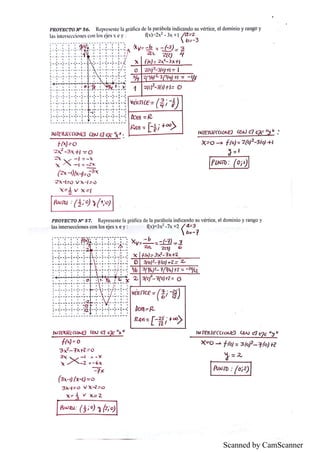 PROYECTO Nº 56. Represente la gráfica de la parábola indicando su vértice, el dominio y rango y
las intersecciones con los ejes x e y : f(x)=2x² - 3x +1
a=2
b=-3
Xv = -b/2a = -(-3)/2(2) = 3/4
x | f(x) = 2x²-3x+1
0 | 2(0)²-3(0)+1 = 1
1 | 2(1)²-3(1)+1 = 0
VÉRTICE = (3/4 ; -1/8)
DOM = R
RAN = [-1/8 ; +∞>
INTERSECCIONES CON EL EJE "x" :
f(x) = 0
2x²-3x+1 = 0
2x -1 = -x
x -1 = -2x
-3x
(2x-1)(x-1)=0
2x-1=0 v x-1=0
x=1/2 v x=1
PUNTO : (1/2 ; 0) y (1 ; 0)
INTERSECCIONES CON EL EJE "y" :
x=0 → f(x) = 2(0)²-3(0)+1
y=1
PUNTO : (0;1)
PROYECTO Nº 57. Represente la gráfica de la parábola indicando su vértice, el dominio y rango y
las intersecciones con los ejes x e y : f(x)=3x² -7x +2
a=3
b=-7
x | f(x) = 3x²-7x+2
0 | 3(0)²-7(0)+2 = 2
2 | 3(2)²-7(2)+2 = 0
DOM = R
RAN = [-25/12 ; +∞>
INTERSECCIONES CON EL EJE "x"
f(x) = 0
3x²-7x+2=0
3x -1 = -x
x -2 = -6x
-7x
(3x-1)(x-2)=0
3x-1=0 v x-2=0
x=1/3 v x=2
PUNTO : (1/3 ; 0) y (2 ; 0)
INTERSECCIONES CON EL EJE "y"
x=0 → f(x) = 3(0)²-7(0)+2
y = 2
PUNTO : (0;2)
Scanned by CamScanner